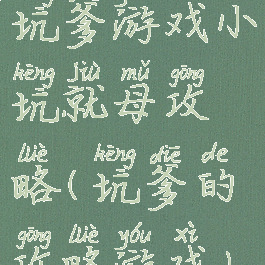 坑爹游戏小
kēng jiù mǔ gōng
坑就母攻
lüè kēng diē de
略(坑爹的
gōng lüè yóu xì
攻略游戏)